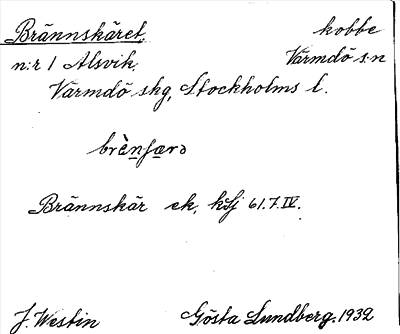 Brännskäret, kobbe
n:r 1 Alsvik, Värmdö s:n
Värmdö skg, Stockholms l.
brènʃærə
Brännskär ek, kSj 61.7.IV.
J. Westin Gösta Lundberg. 1932